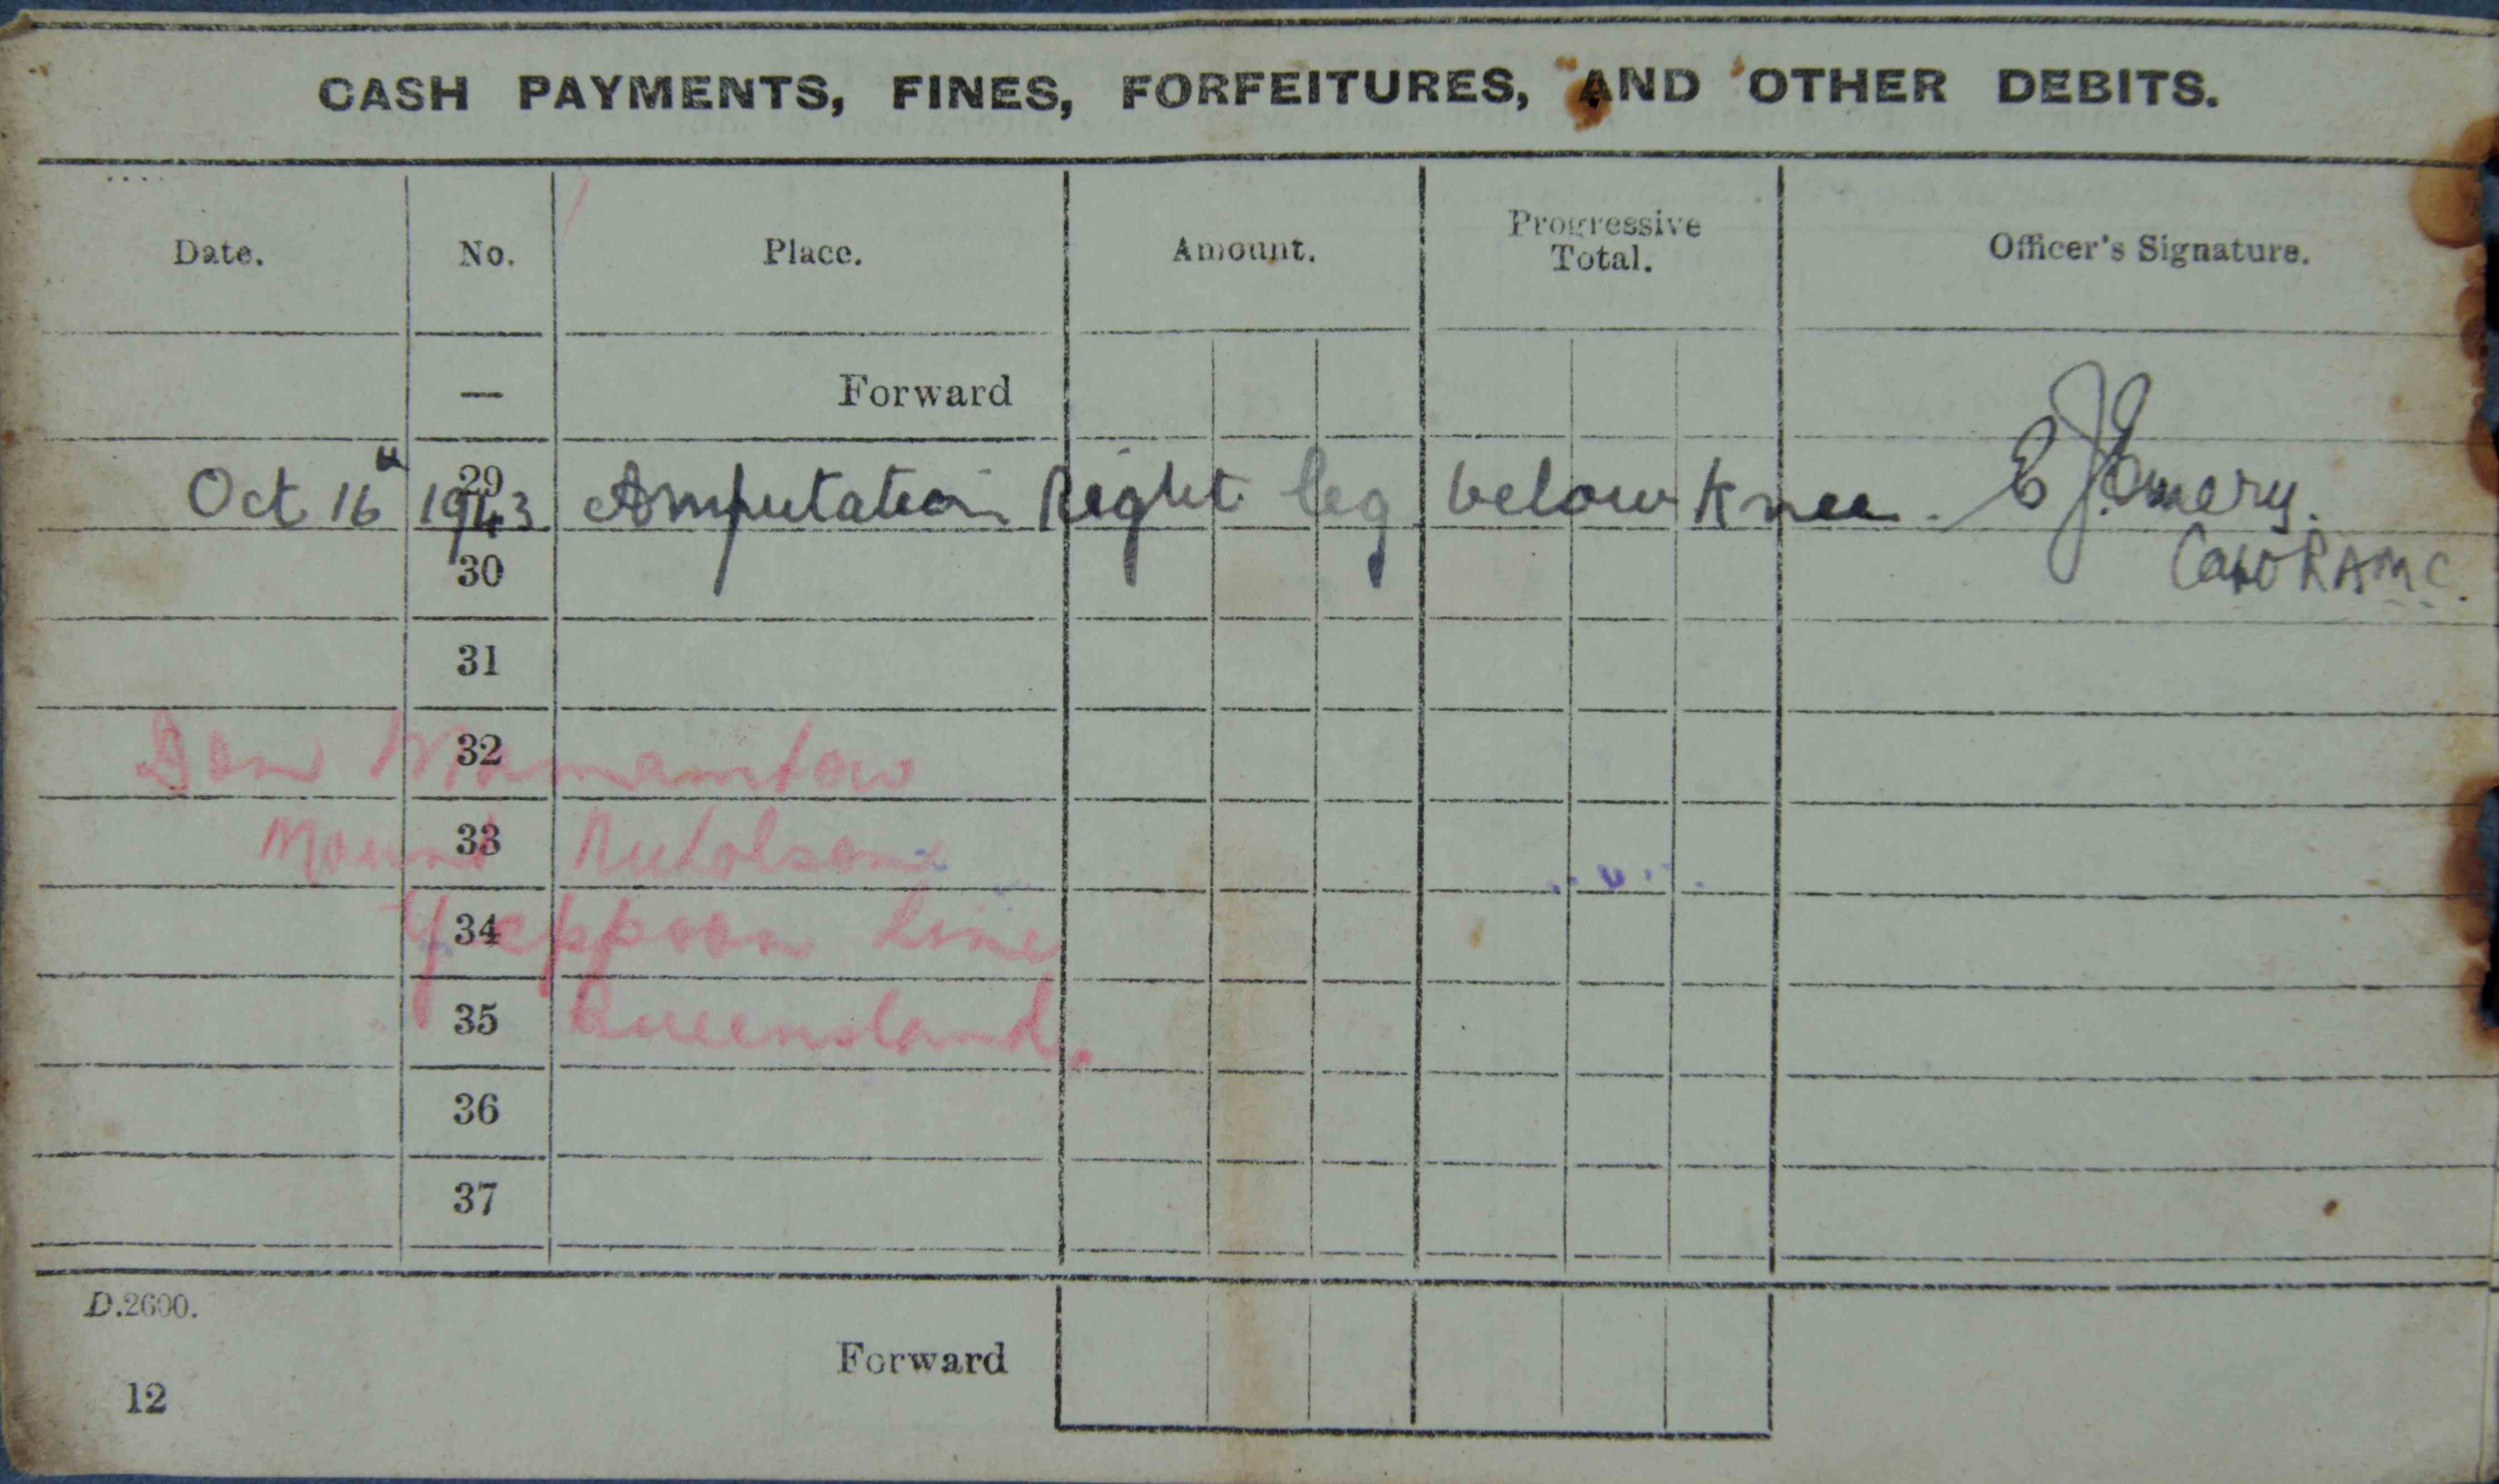 CASH PAYMENTS, FINES, FORFEITURES, AND OTHER DEBITS.
Date. No. Place. Amount. Progressive Total. Officer's Signature.
— Forward
29
Oct 16th 1943 Amputation Right leg below Knee. E J Emery.
Capt RAMC.
30
31
32
Don
33
Mount Nicholson
34
Yeppoon Line
35
Queensland.
36
37
D.2600.
Forward
12